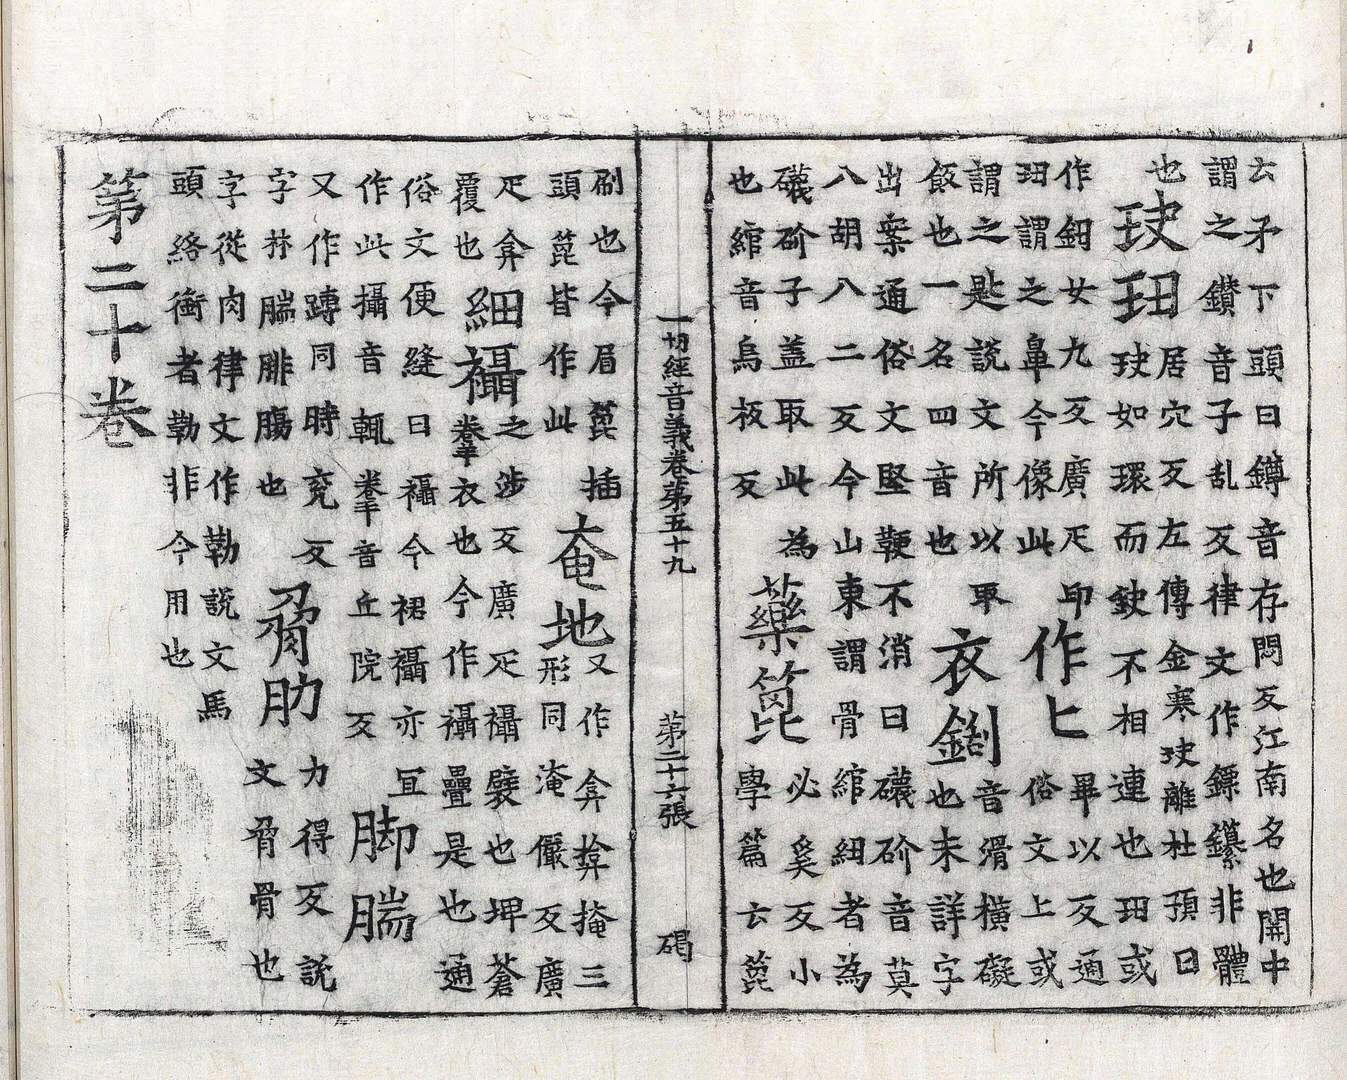 云矛下頭曰鐏音存悶反江南名也開中
謂之鑽音子乱反律文作鏢非體
也
玦㺲
居穴反左傳金寒玦離杜預曰
玦如環而鈌不相連也㺲或
作鈕女九反廣疋印
㺲謂之鼻今像此
作匕
畢以反通
俗文上或
謂之匙説文所以取
飯也一名四音也
衣
音滑橫礙
也未詳字
出案通俗文堅鞕不消曰礣砎音莫
八胡八二反今山東謂骨綰細者為
礣砎子盖取此為
也綰音烏板反
藥篦
必奚反小
學篇云篦
一切經音義卷第五十九　第二十六張　碣
刷也今眉篦插
頭篦皆作此
奄地
又作弇揜掩三
形同淹儼反廣
疋弇
覆也
細襵
之涉反廣疋襵襞也埤蒼
攣衣也今作襵疊是也通
俗文便縫曰襵今裙襵亦冝
作此攝音輒攣音丘院反
脚腨
又作䠂同時兖反
字林腨腓膓也
脅肋
力得反説
文脅骨也
字從肉律文作勒説文馬
頭絡銜者勒非今用也
第二十卷